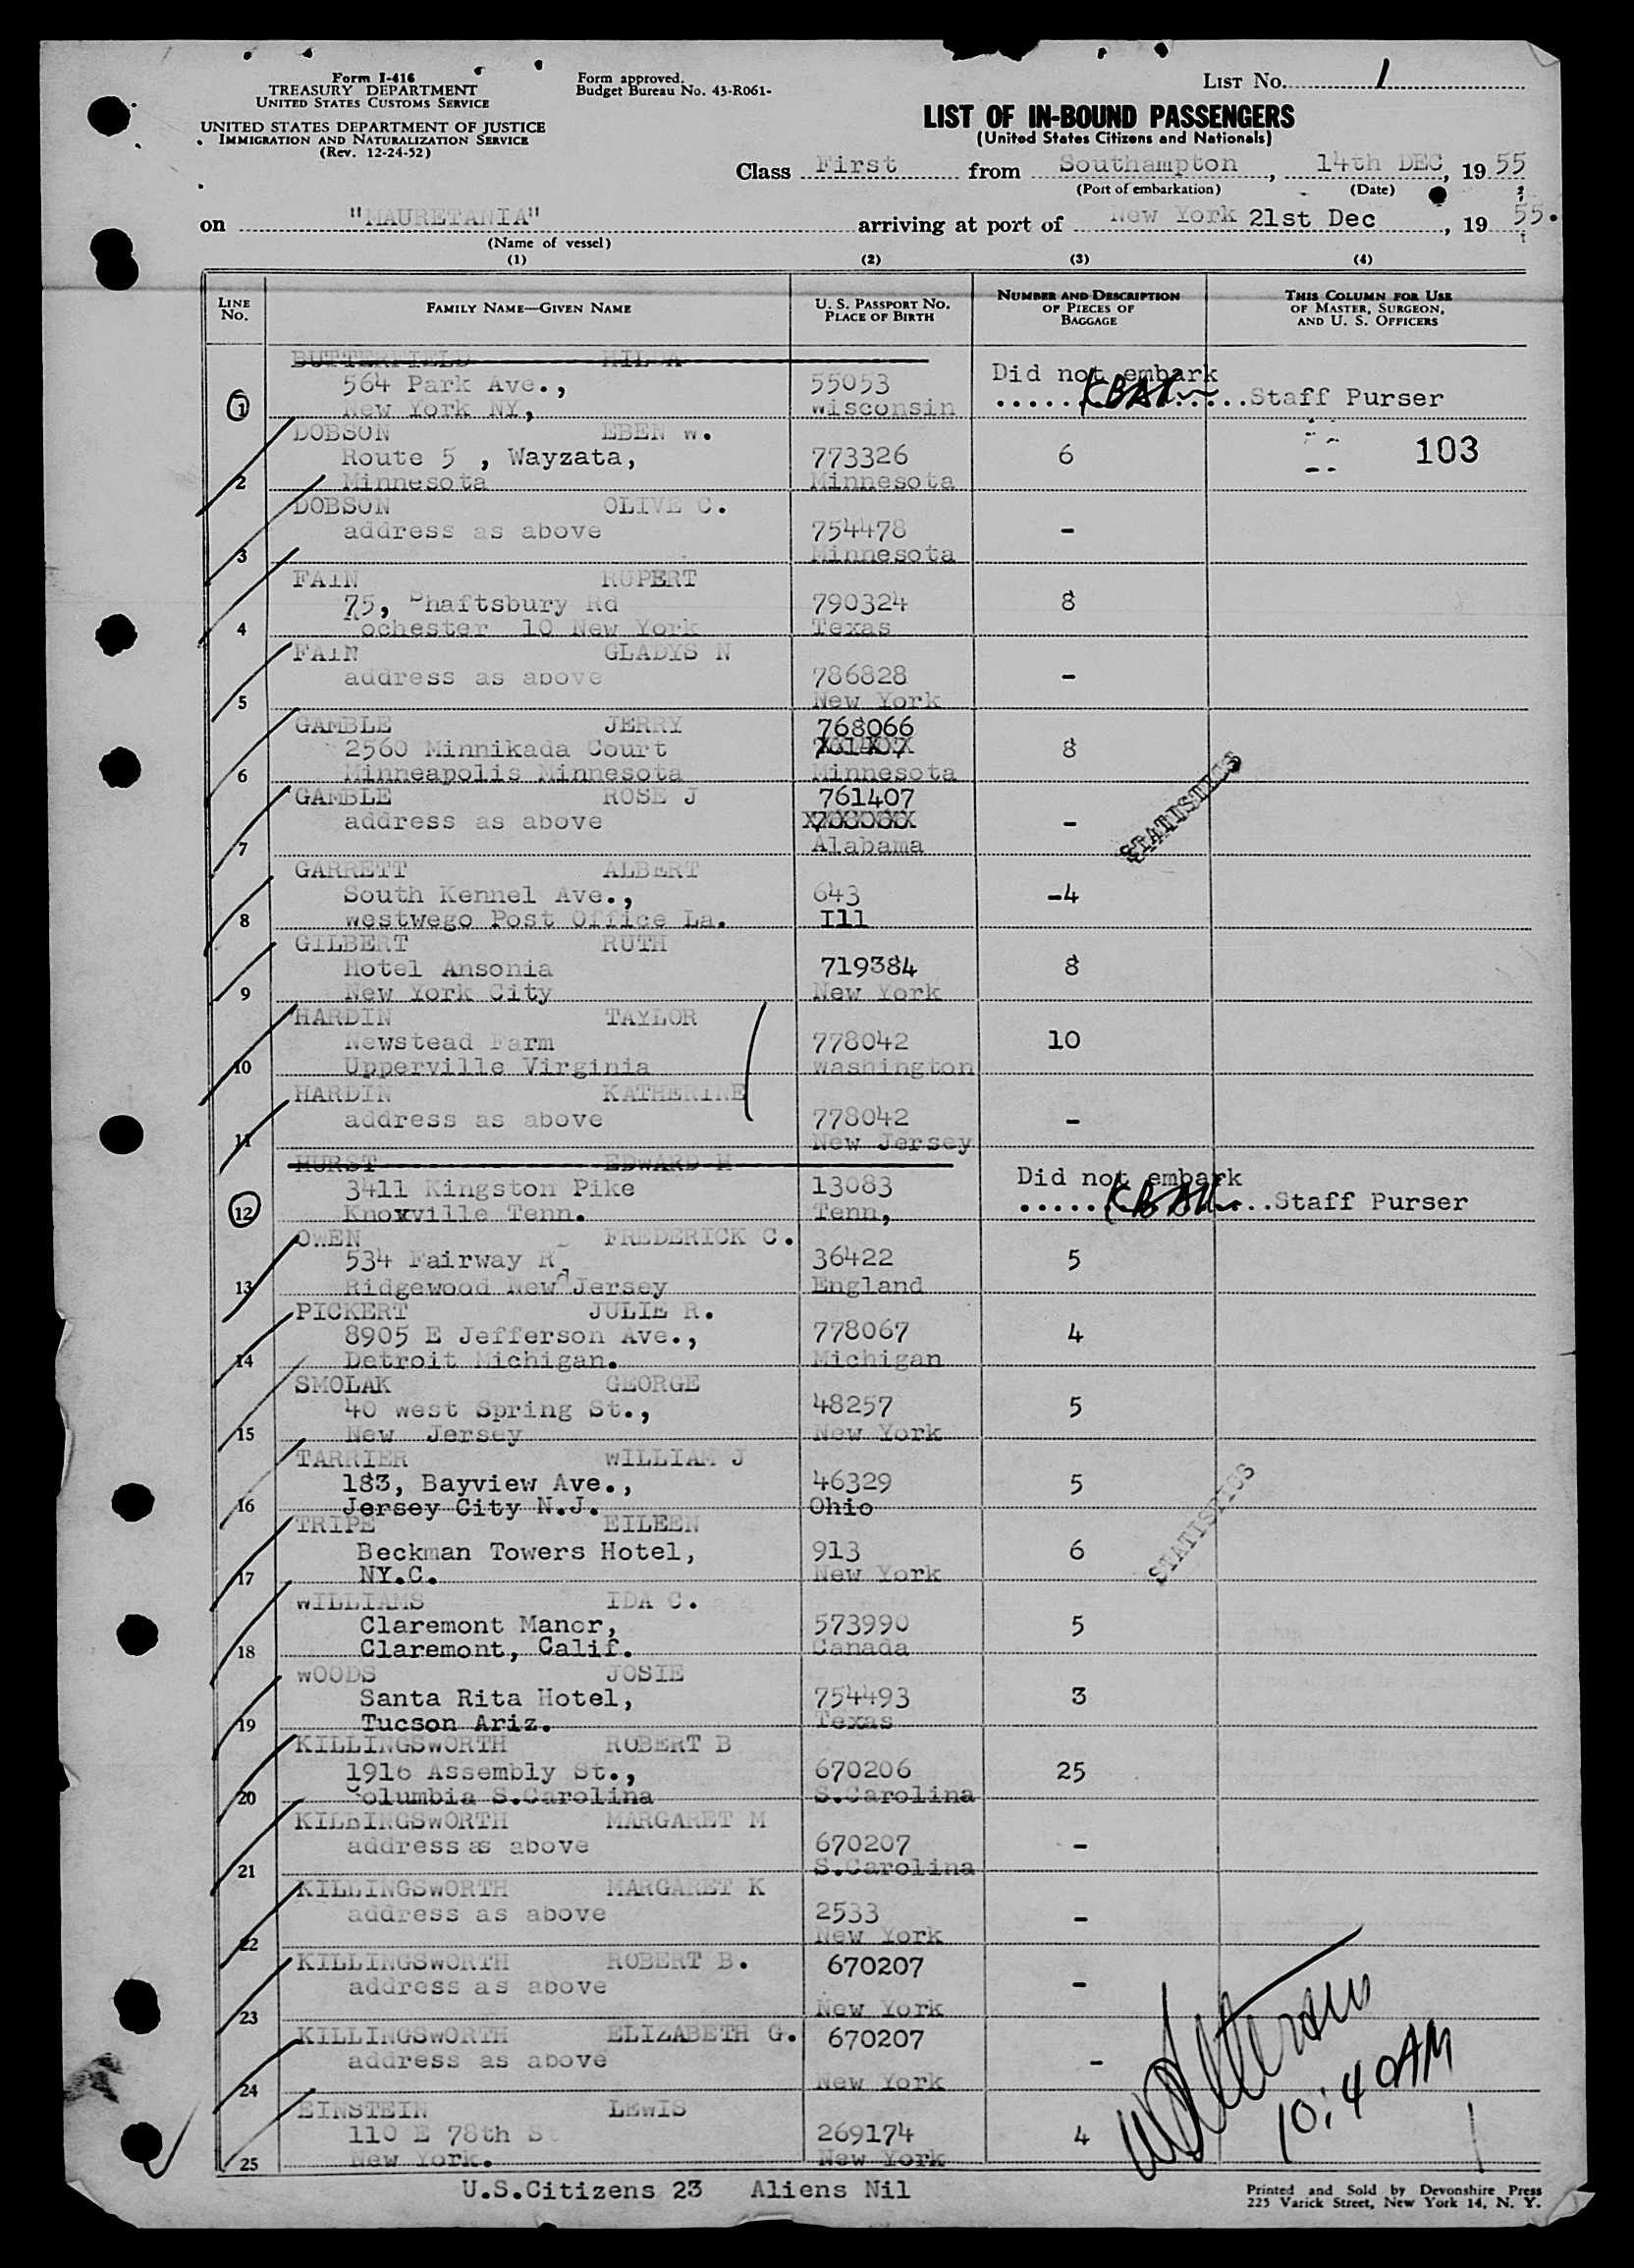 Form I-416
TREASURY DEPARTMENT
UNITED STATES CUSTOMS SERVICE
UNITED STATES DEPARTMENT OF JUSTICE
IMMIGRATION AND NATURALIZATION SERVICE
(Rev. 12-24-52)
Form approved.
Budget Bureau No. 43-R061-
LIST No. 1
LIST OF IN-BOUND PASSENGERS
(United States Citizens and Nationals)
Class First from Southampton, 14th DEC, 19 55
(Port of embarkation) (Date)
on "MAURETANIA" arriving at port of New York 21st Dec, 19 55.
(Name of vessel)
(1) (2) (3) (4)
LINE No. FAMILY NAME—GIVEN NAME U. S. PASSPORT No. PLACE OF BIRTH NUMBER AND DESCRIPTION OF PIECES OF BAGGAGE THIS COLUMN FOR USE OF MASTER, SURGEON, AND U. S. OFFICERS
BUTTERFIELD HILDA
564 Park Ave., 55053 Did not embark
1 New York NY, Wisconsin ..........Staff Purser
DOBSON EBEN W.
Route 5 , Wayzata, 773326 6 103
2 Minnesota Minnesota
DOBSON OLIVE C.
address as above 754478 -
3 Minnesota
FAIN RUPERT
75, Shaftsbury Rd 790324 8
4 ochester 10 New York Texas
FAIN GLADYS N
address as above 786828 -
5 New York
GAMBLE JERRY 768066
2560 Minnikada Court 761407 8
6 Minneapolis Minnesota Minnesota
GAMBLE ROSE J 761407
address as above -
7 Alabama
GARRETT ALBERT
South Kennel Ave., 643 -4
8 Westwego Post Office La. Ill
GILBERT RUTH
Hotel Ansonia 719384 8
9 New York City New York
HARDIN TAYLOR
Newstead Farm 778042 10
10 Upperville Virginia Washington
HARDIN KATHERINE
address as above 778042 -
11 New Jersey
HURST EDWARD H
3411 Kingston Pike 13083 Did not embark
12 Knoxville Tenn. Tenn, ..........Staff Purser
OWEN FREDERICK C.
534 Fairway Rd 36422 5
13 Ridgewood New Jersey England
PICKERT JULIE R.
8905 E Jefferson Ave., 778067 4
14 Detroit Michigan. Michigan
SMOLAK GEORGE
40 West Spring St., 48257 5
15 New Jersey New York
TARRIER WILLIAM J
183, Bayview Ave., 46329 5
16 Jersey City N.J. Ohio
TRIPE EILEEN
Beckman Towers Hotel, 913 6
17 NY.C. New York
WILLIAMS IDA C.
Claremont Manor, 573990 5
18 Claremont, Calif. Canada
WOODS JOSIE
Santa Rita Hotel, 754493 3
19 Tucson Ariz. Texas
KILLINGSWORTH ROBERT B
1916 Assembly St., 670206 25
20 Columbia S.Carolina S.Carolina
KILLINGSWORTH MARGARET M
address as above 670207 -
21 S.Carolina
KILLINGSWORTH MARGARET K
address as above 2533 -
22 New York
KILLINGSWORTH ROBERT B. 670207
address as above -
23 New York
KILLINGSWORTH ELIZABETH G. 670207
address as above -
24 New York
EINSTEIN LEWIS
110 E 78th St 269174 4
25 New York. New York
STATISTICS
STATISTICS
10:40AM
U.S.Citizens 23 Aliens Nil
Printed and Sold by Devonshire Press
225 Varick Street, New York 14, N. Y.